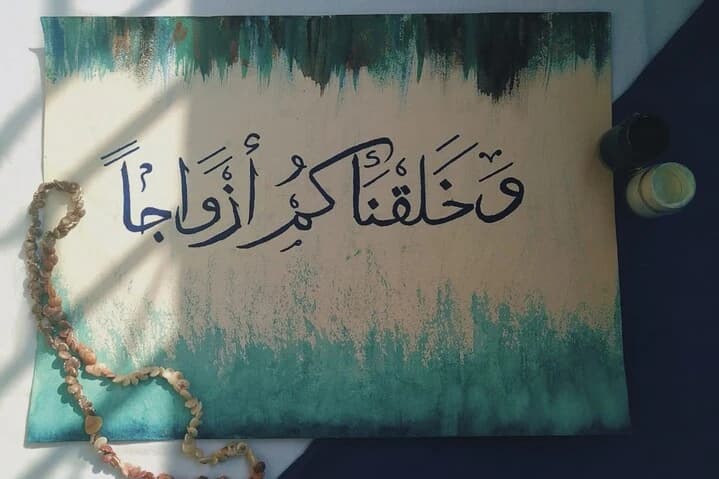 وَخَلَقْنَاكُمْ أَزْوَاجاً